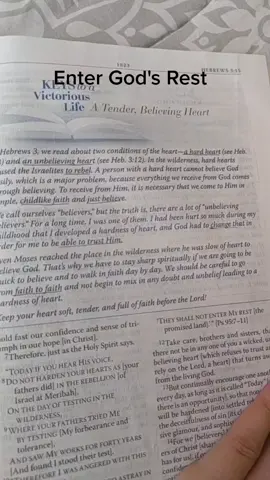 1923
HEBREWS 3:15
KEYS to a
Victorious
Life A Tender, Believing Heart
Enter God's Rest
Hebrews 3, we read about two conditions of the heart—a hard heart (see Heb.
) and an unbelieving heart (see Heb. 3:12). In the wilderness, hard hearts
used the Israelites to rebel. A person with a hard heart cannot believe God
sily, which is a major problem, because everything we receive from God comes
rough believing. To receive from Him, it is necessary that we come to Him in
mple, childlike faith and just believe.
We call ourselves "believers," but the truth is, there are a lot of "unbelieving
elievers." For a long time, I was one of them. I had been hurt so much during my
hildhood that I developed a hardness of heart, and God had to change that in
rder for me to be able to trust Him.
ven Moses reached the place in the wilderness where he was slow of heart to
elieve God. That's why we have to stay sharp spiritually if we are going to be
uick to believe and to walk in faith day by day. We should be careful to go
from faith to faith and not begin to mix in any doubt and unbelief leading to a
ardness of heart.
Keep your heart soft, tender, and full of faith before the Lord!
old fast our confidence and sense of tri-
umph in our hope [in Christ].
7 Therefore, just as the Holy Spirit says,
"TODAY IF YOU HEAR HIS VOICE,
8 DO NOT HARDEN YOUR HEARTS as [your
fathers did] IN THE REBELLION [of
Israel at Meribah],
ON THE DAY OF TESTING IN THE
WILDERNESS,
9 WHERE YOUR FATHERS TRIED ME
BY TESTING [My forbearance and
tolerance],
AND SAW MY WORKS FOR FORTY YEARS
[And found I stood their test].
THEREFORE I WAS ANGERED WITH THIS
'THEY SHALL NOT ENTER MY REST [the
promised land].' " [Ps 95:7-11]
12 Take care, brothers and sisters, th
there not be in any one of you a wicked, u
believing heart [which refuses to trust an
rely on the Lord, a heart] that turns awa
from the living God.
13 But continually encourage one anoth
every day, as long as it is called "Today"
there is an opportunity], so that none
will be hardened [into settled reb
the deceitfulness of sin [its cl
sive glamour, and sophis
14 For we [believers]
ers of Christ [shar